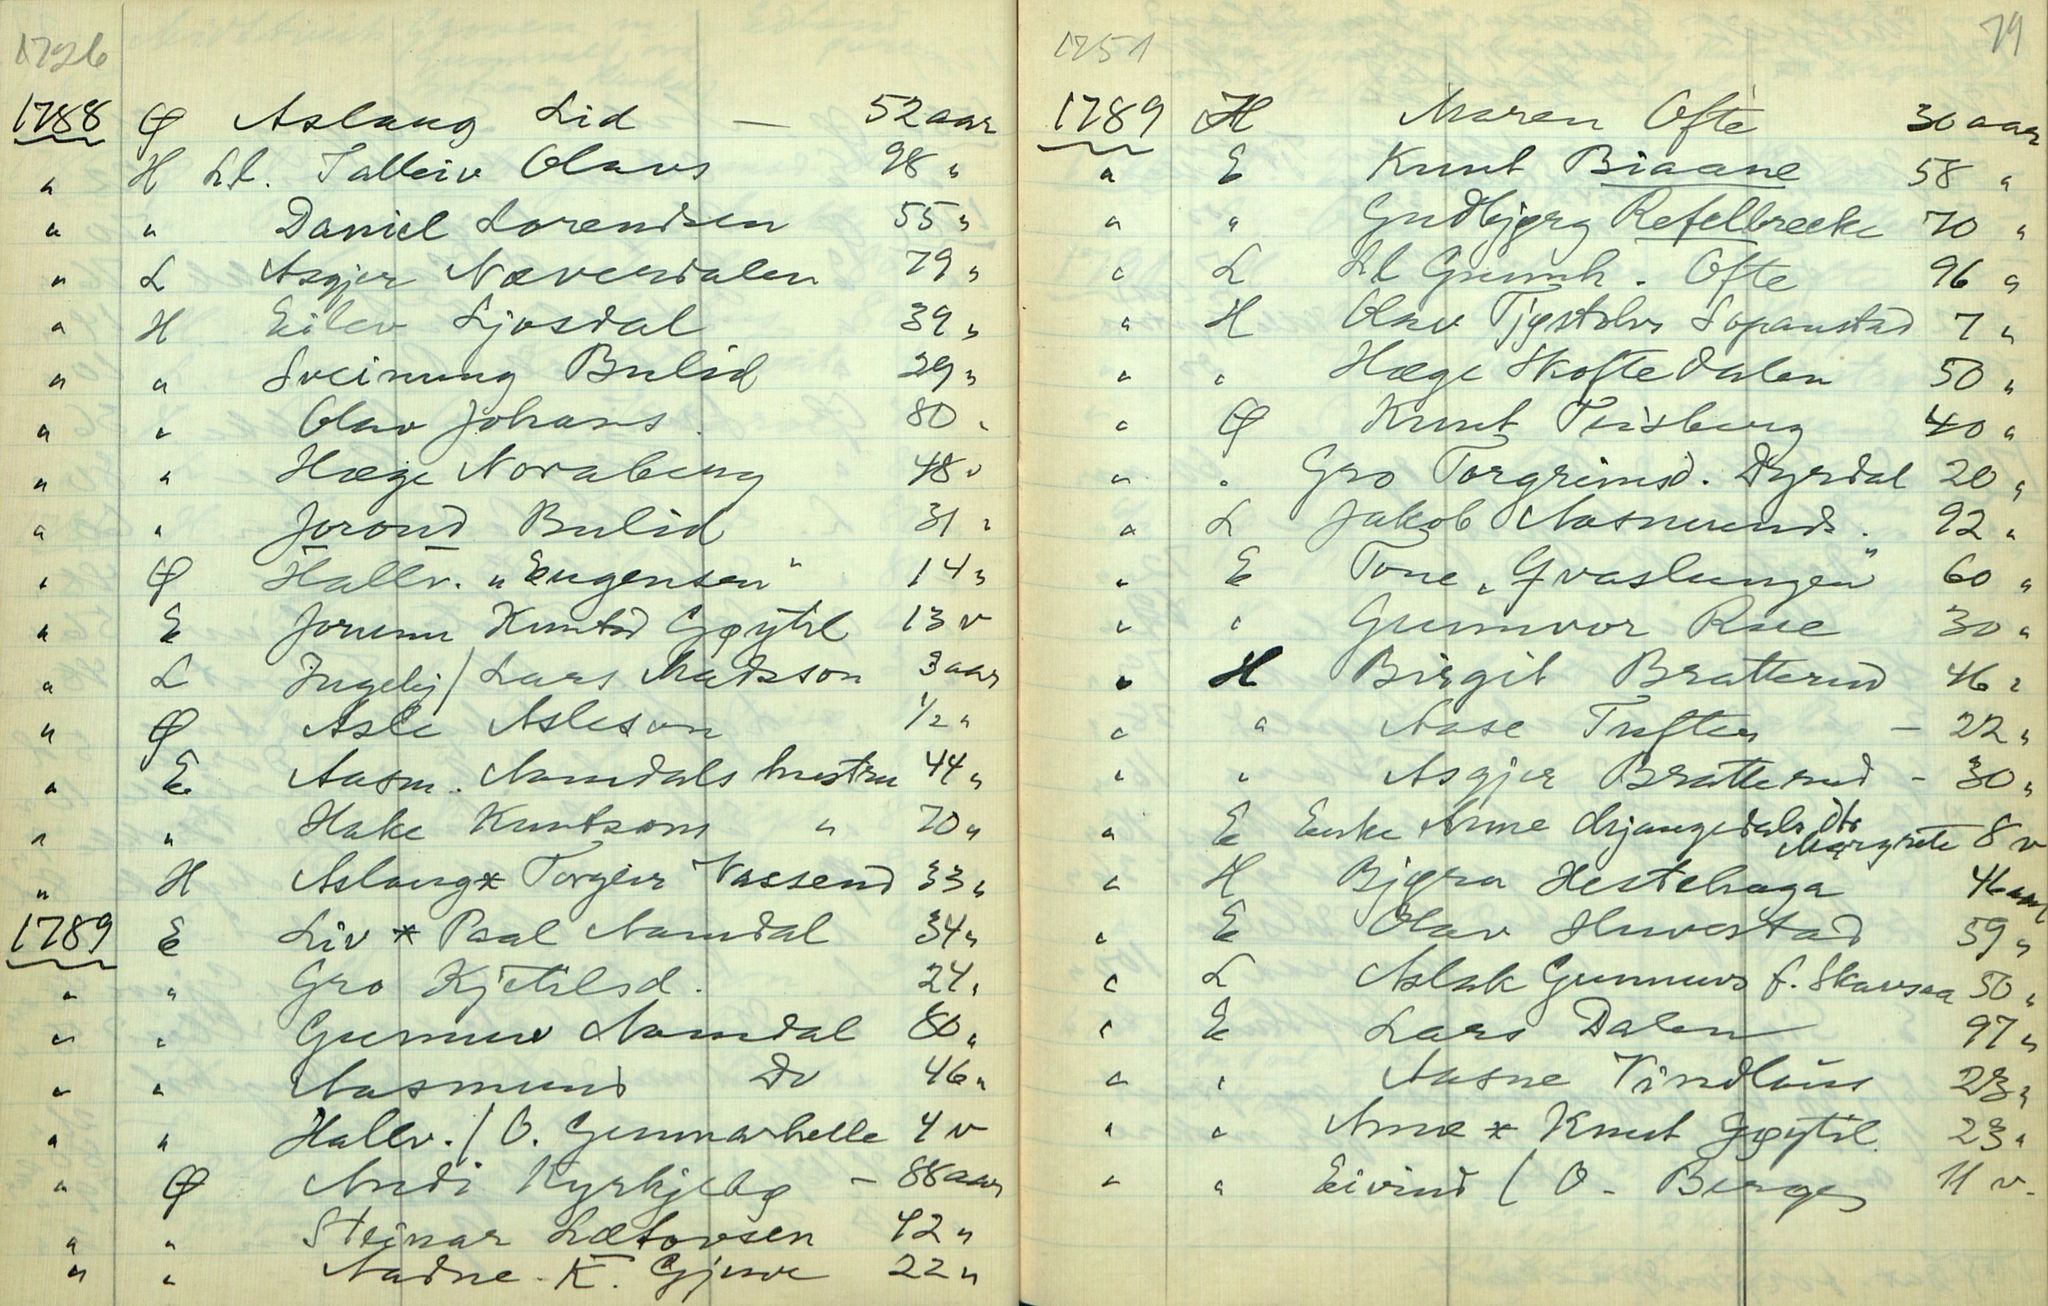 1726
1788 Ø Aslaug Lid — 52 aar
" H Ll. Talleiv Olavs 98 "
" " Daniel Lorendsen 55 "
" L Asgjer Næverdalen 79 "
" H Eilev Ljosdal 39 "
" " Sveinung Bulid 29 "
" " Olav Johans. 80 "
" " Hæge Noraberg 48 v
" " Jorond Bulid 31 "
" Ø Hallv. "Eugensen" 14 "
" E Jorunn Knutsd Gøytil 13 v
" L Ingebj / Lars Madsson 3 aar
" Ø Asle Asleson 1/2 "
" E Aasm. Aamdals hustru 44 "
" " Hake Knutsons " 70 "
" H Aslaug * Torgeir Vassend 33 "
1789 E Liv * Paal Aamdal 34 "
" " Gro Kjetilsd. 24 "
" " Gunnuv Aamdal 80 "
" " Aasmund Do 46 "
" " Hallv. / O. Gunnarhelle 4 v
" Ø Andi Kyrkjebø — 88 aar
" " Steinar Lætovsen 42 "
" " Aadne K. Gjuve 22 "
1751
79
1789 H Maren Ofte 30 aar
" E Knut Biaane 58 "
" " Gudbjørg Refelbrekke 70 "
" L Ll Gunnh. Ofte 96 "
" H Olav Tjøstolvs Sopanstad 7 "
" " Hæge Skoftedalen 50 "
" Ø Knut Teisberg 40 "
" " Gro Torgrimsd. Dyrdal 20 "
" L Jakob Aasmunds. 92 "
" E Tone "Gvaslungen" 60 "
" " Gunnvor Rue 30 "
" H Birgit Bratterud 46 "
" " Aase Tuften — 22 "
" " Asgjer Bratterud — 30 "
" E Enke Anne Mjaugedals Dtr Margrete 8 v
" H Bjørn Hestehaga 46 aar
" E Olav Huvestad 59 "
" L Aslak Gunnuvs f. Skavsaa 50 "
" E Lars Dalen 97 "
" " Aasne Vindlaus 23 "
" " Anne * Knut Gøytil 23 "
" " Eivind / O. Berge 11 v.